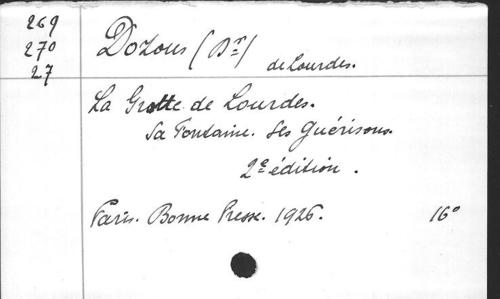 269
270
27
Dozous (Dr)
de Lourdes.
La Grotte de Lourdes.
Sa Fontaine. Ses Guérisons.
2e édition.
Paris. Bonne Presse. 1926. 16°